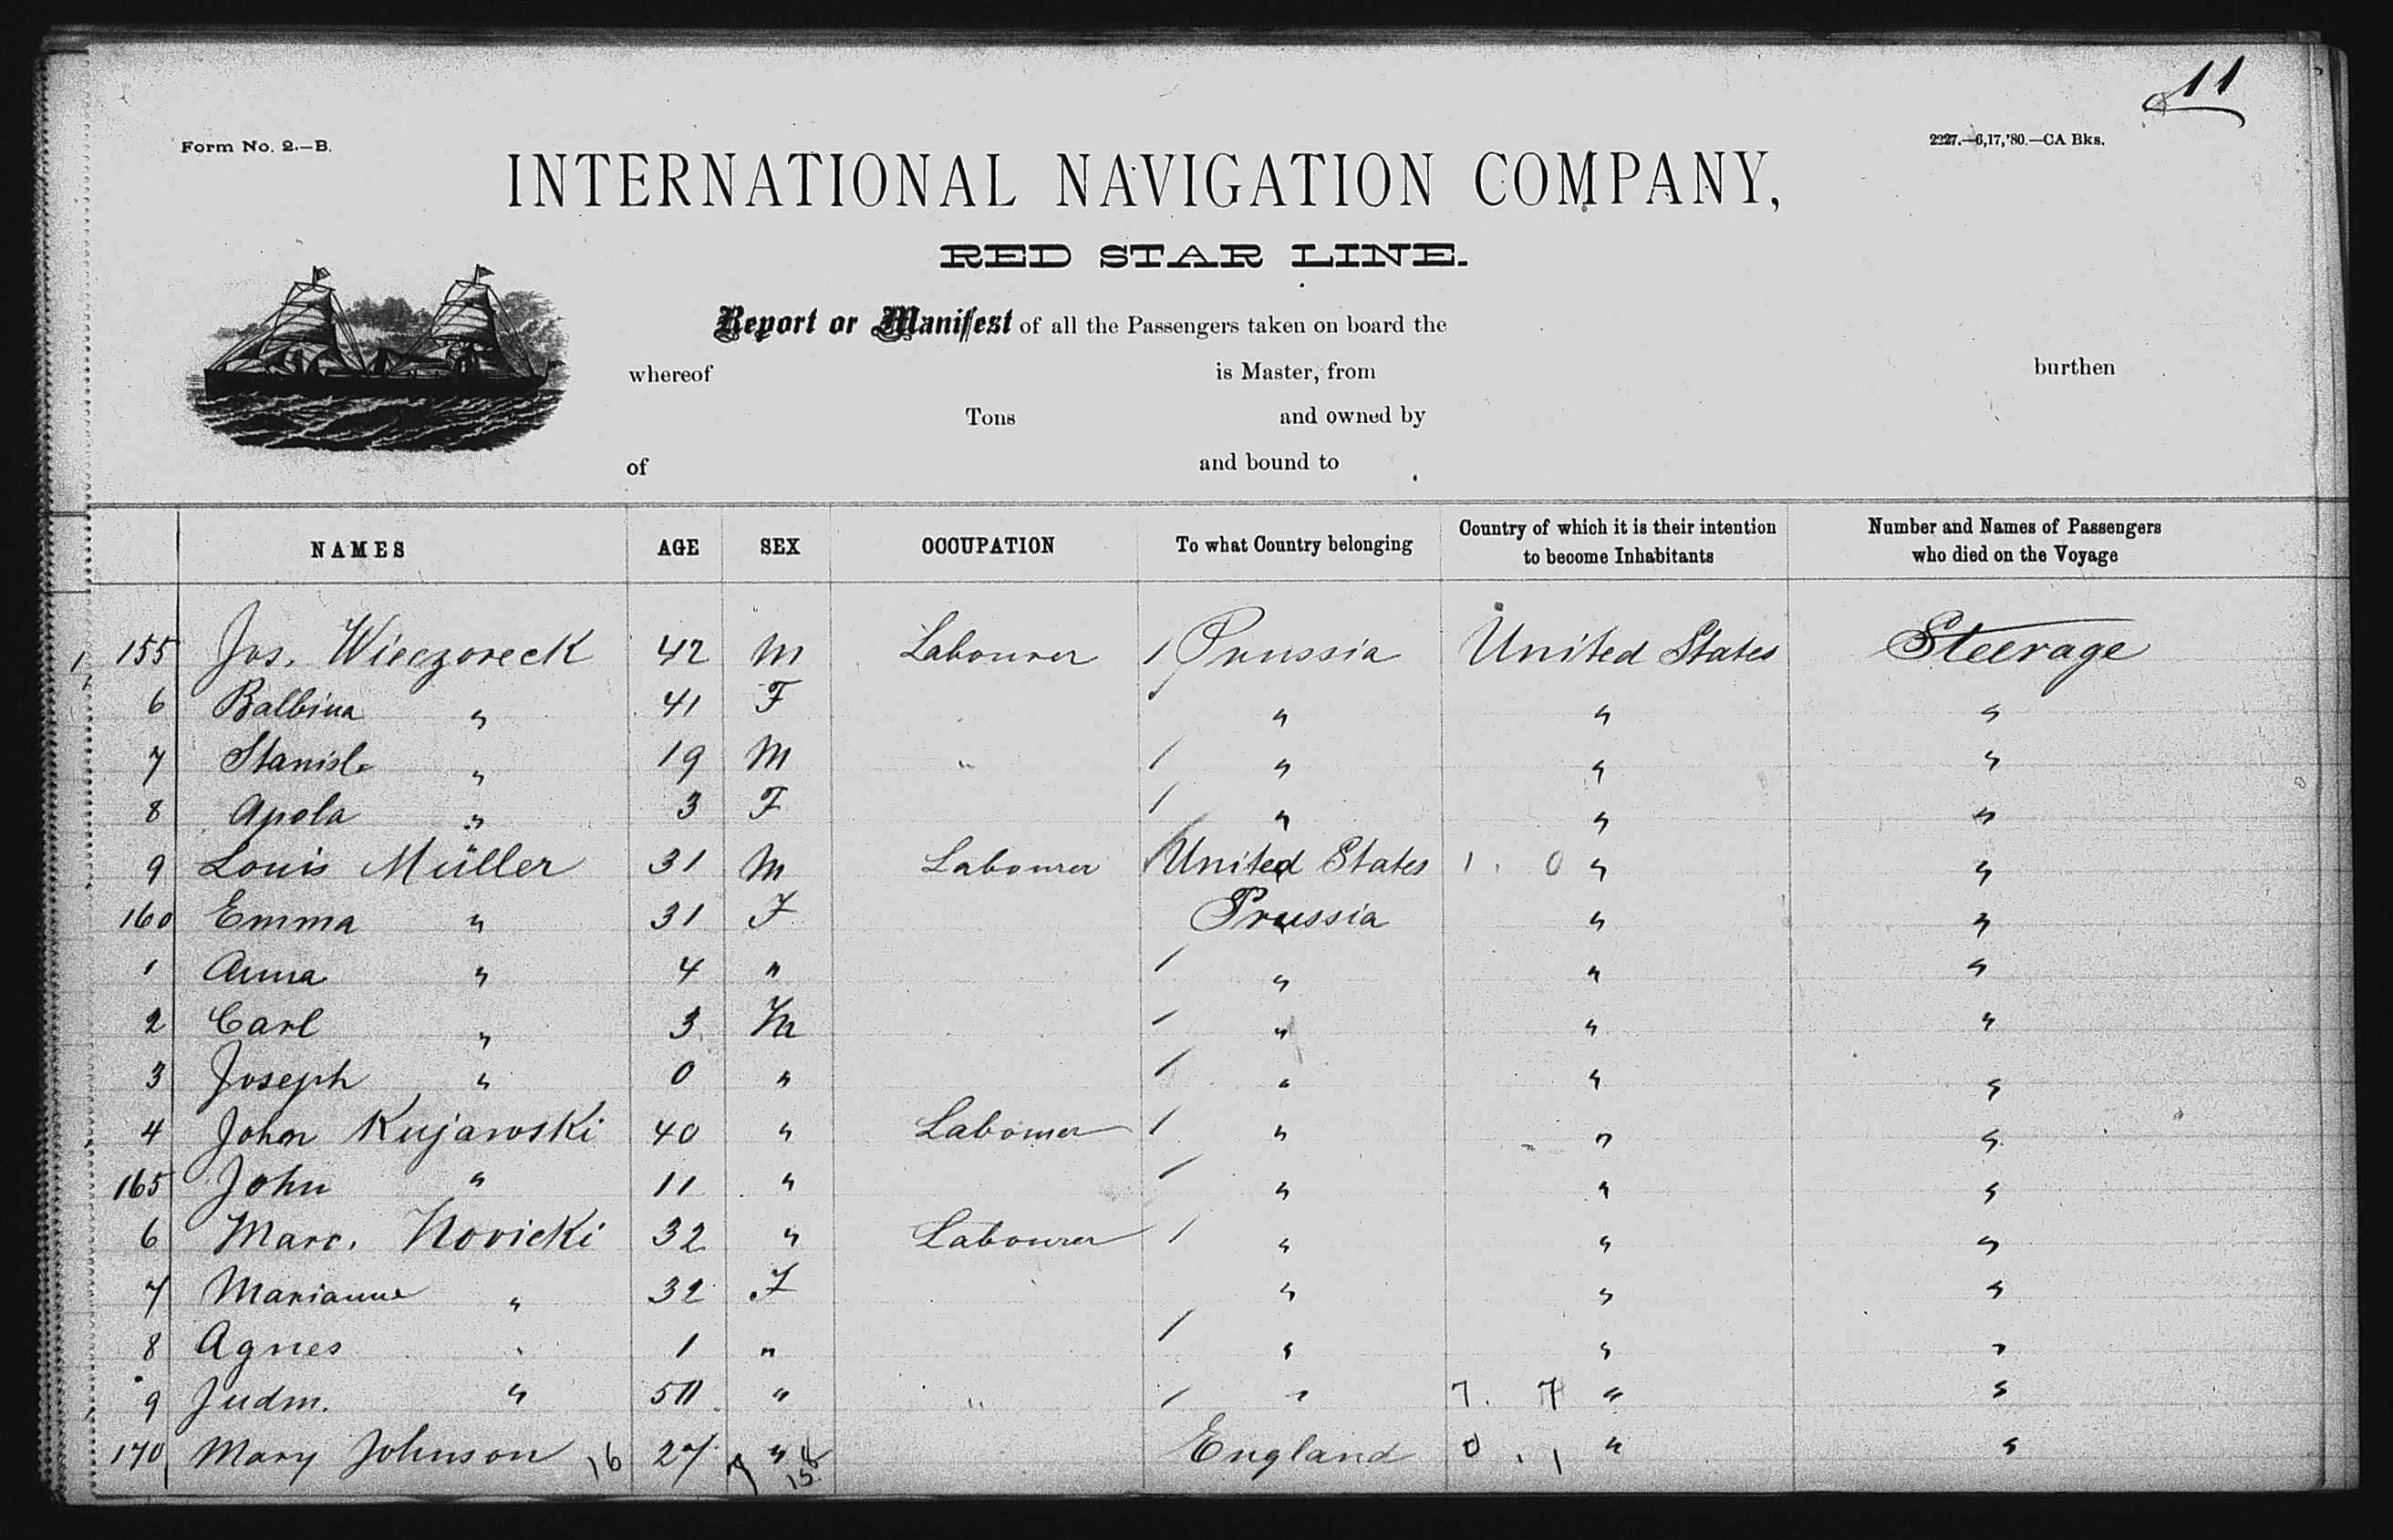 11
Form No. 2.—B.
2227.—6,17,'80.—CA Bks.
INTERNATIONAL NAVIGATION COMPANY,
RED STAR LINE.
Report or Manifest of all the Passengers taken on board the
whereof is Master, from burthen
Tons and owned by
of and bound to
NAMES AGE SEX OCCUPATION To what Country belonging Country of which it is their intention to become Inhabitants Number and Names of Passengers who died on the Voyage
155 Jos. Wieczoreck 42 M Labourer 1 Prussia United States Steerage
6 Balbina " 41 F " " "
7 Stanisl. " 19 M " 1 " " "
8 Apola " 3 F 1 " " "
9 Louis Müller 31 M Labourer 1 United States 1. 0 " "
160 Emma " 31 F Prussia " "
1 Anna " 4 " 1 " " "
2 Carl " 3 M 1 " " "
3 Joseph " 0 " 1 " " "
4 John Kujawski 40 " Labourer 1 " " "
165 John " 11 " 1 " " "
6 Marc. Novicki 32 " Labourer 1 " " "
7 Marianne " 32 F " " "
8 Agnes " 1 " 1 " " "
9 Judm. " " " 1 " 7. 7 " "
170 Mary Johnson 16 27 " England 0. 1 " "